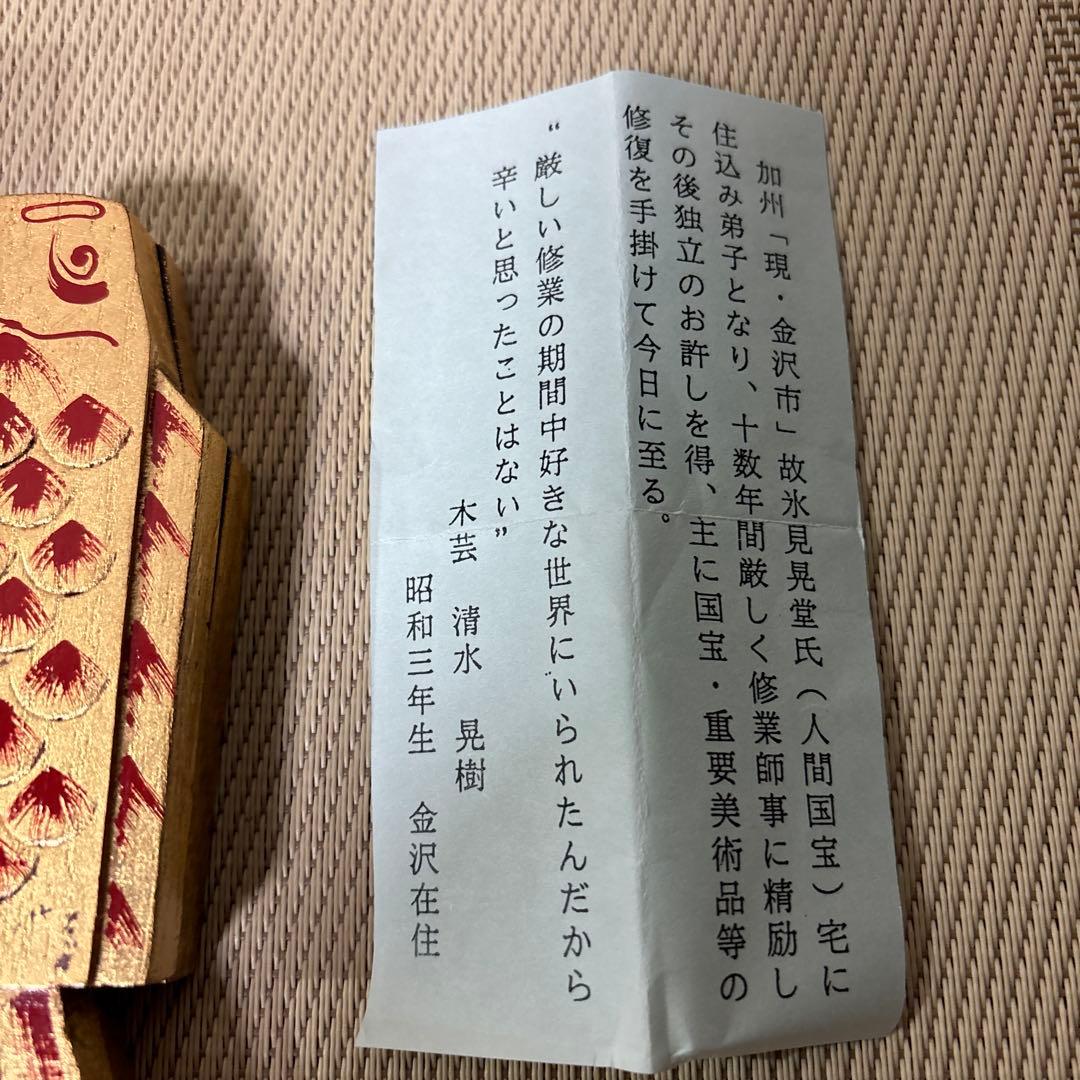 加州「現・金沢市」故氷見晃堂氏（人間国宝）宅に
住込み弟子となり、十数年間厳しく修業師事に精励し
その後独立のお許しを得、主に国宝・重要美術品等の
修復を手掛けて今日に至る。
“厳しい修業の期間中好きな世界にいられたんだから
辛いと思ったことはない”
木芸　清水　晃樹
昭和三年生　金沢在住